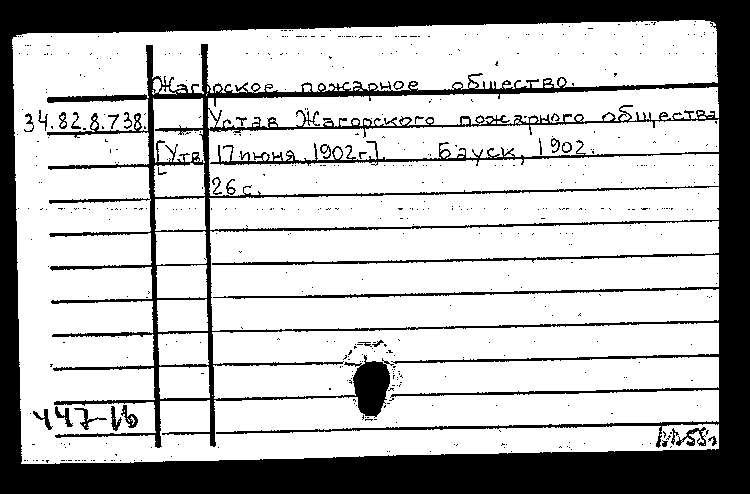 Жагорское пожарное общество.
34.82.8.738. Устав Жагорского пожарного общества
[Утв 17 июня 1902 г.]. Бауск, 1902.
26 с.
447-16